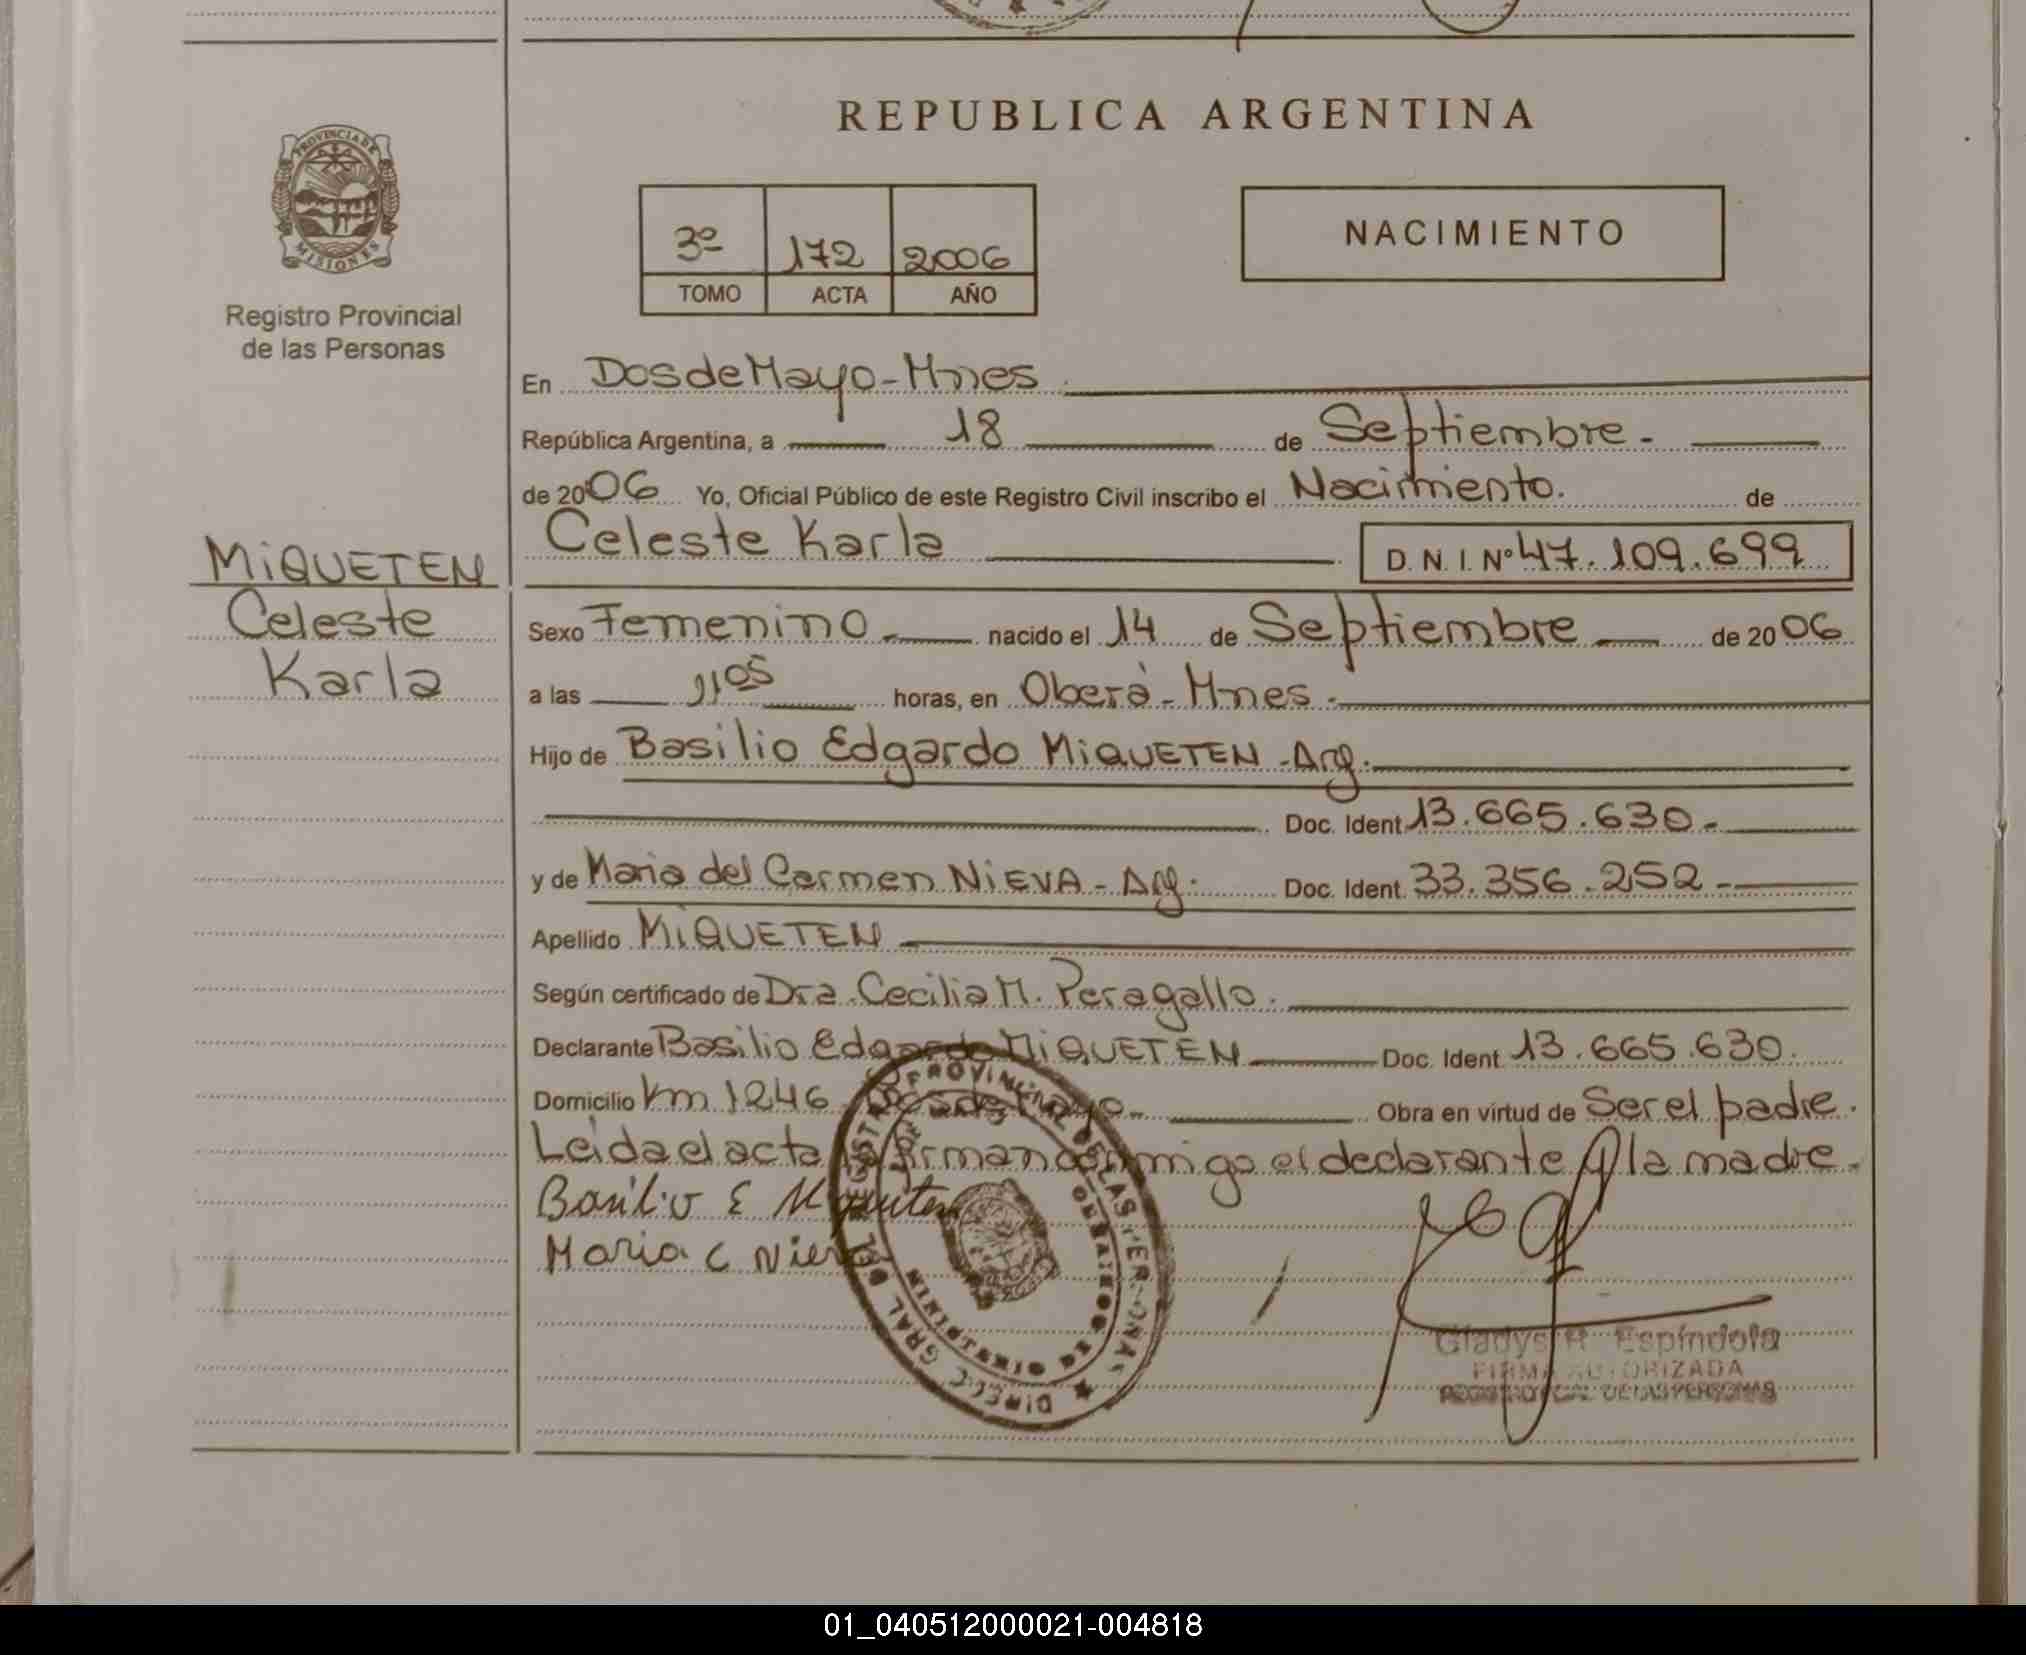 REPUBLICA ARGENTINA
PROVINCIA DE
MISIONES
Registro Provincial
de las Personas
3º 172 2006
TOMO ACTA AÑO
NACIMIENTO
En Dos de Mayo - Mnes
República Argentina, a 18 de Septiembre.-
de 2006 Yo, Oficial Público de este Registro Civil inscribo el Nacimiento. de
Celeste Karla D.N.I. Nº 47.109.699
MiQUETEN
Celeste
Karla
Sexo Femenino nacido el 14 de Septiembre de 2006
a las 11 05 horas, en Oberá - Mnes.
Hijo de Basilio Edgardo MiQUETEN - Arg.
Doc. Ident 13.665.630.-
y de Maria del Carmen NiEVA - Arg. Doc. Ident. 33.356.252 -
Apellido MiQUETEN
Según certificado de Dra. Cecilia M. Peragallo.
Declarante Basilio Edgardo MiQUETEN Doc. Ident. 13.665.630.
Domicilio Km 1246 Dos de Mayo. Obra en virtud de Ser el padre.
Leida el acta la firman conmigo el declarante y la madre.
Basilio E Miqueten
Maria C Nieva
DIRECC GRAL DEL REGISTRO PROVINCIAL DE LAS PERSONAS
Gladys R. Espíndola
FIRMA AUTORIZADA
01_040512000021-004818